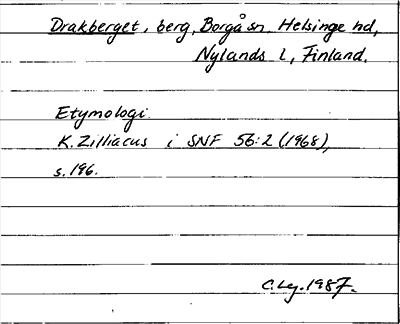 Drakberget, berg, Borgå sn, Helsinge hd,
Nylands l, Finland.
Etymologi.
K. Zilliacus i SNF 56:2 (1968),
s. 196.
C. Lg. 1987.